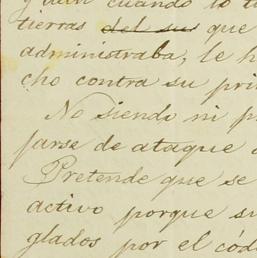 y aun cuando lo t
tierras del sus que
administraba, le h
cho contra su pri
No siendo ni p
farse de ataque
Pretende que se
activo porque su
glados por el cód